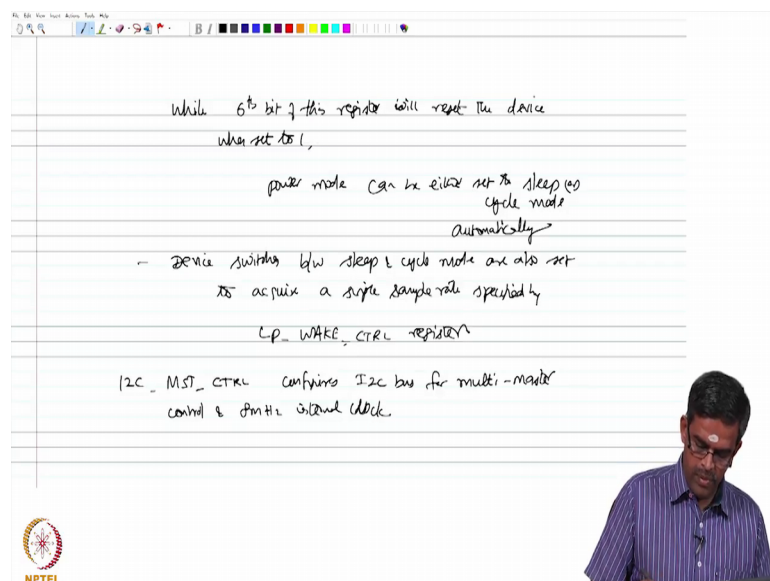 File Edit View Insert Actions Tools Help
B I
While 6th bit of this register will reset the device
when set to 1,
power mode can be either set to sleep (or)
cycle mode
automatically
- Device switches b/w sleep & cycle mode are also set
to acquire a single sample rate specified by
LP_WAKE_CTRL register
I2C_MST_CTRL configures I2C bus for multi-master
control & 8MHz internal clock.
NPTEL